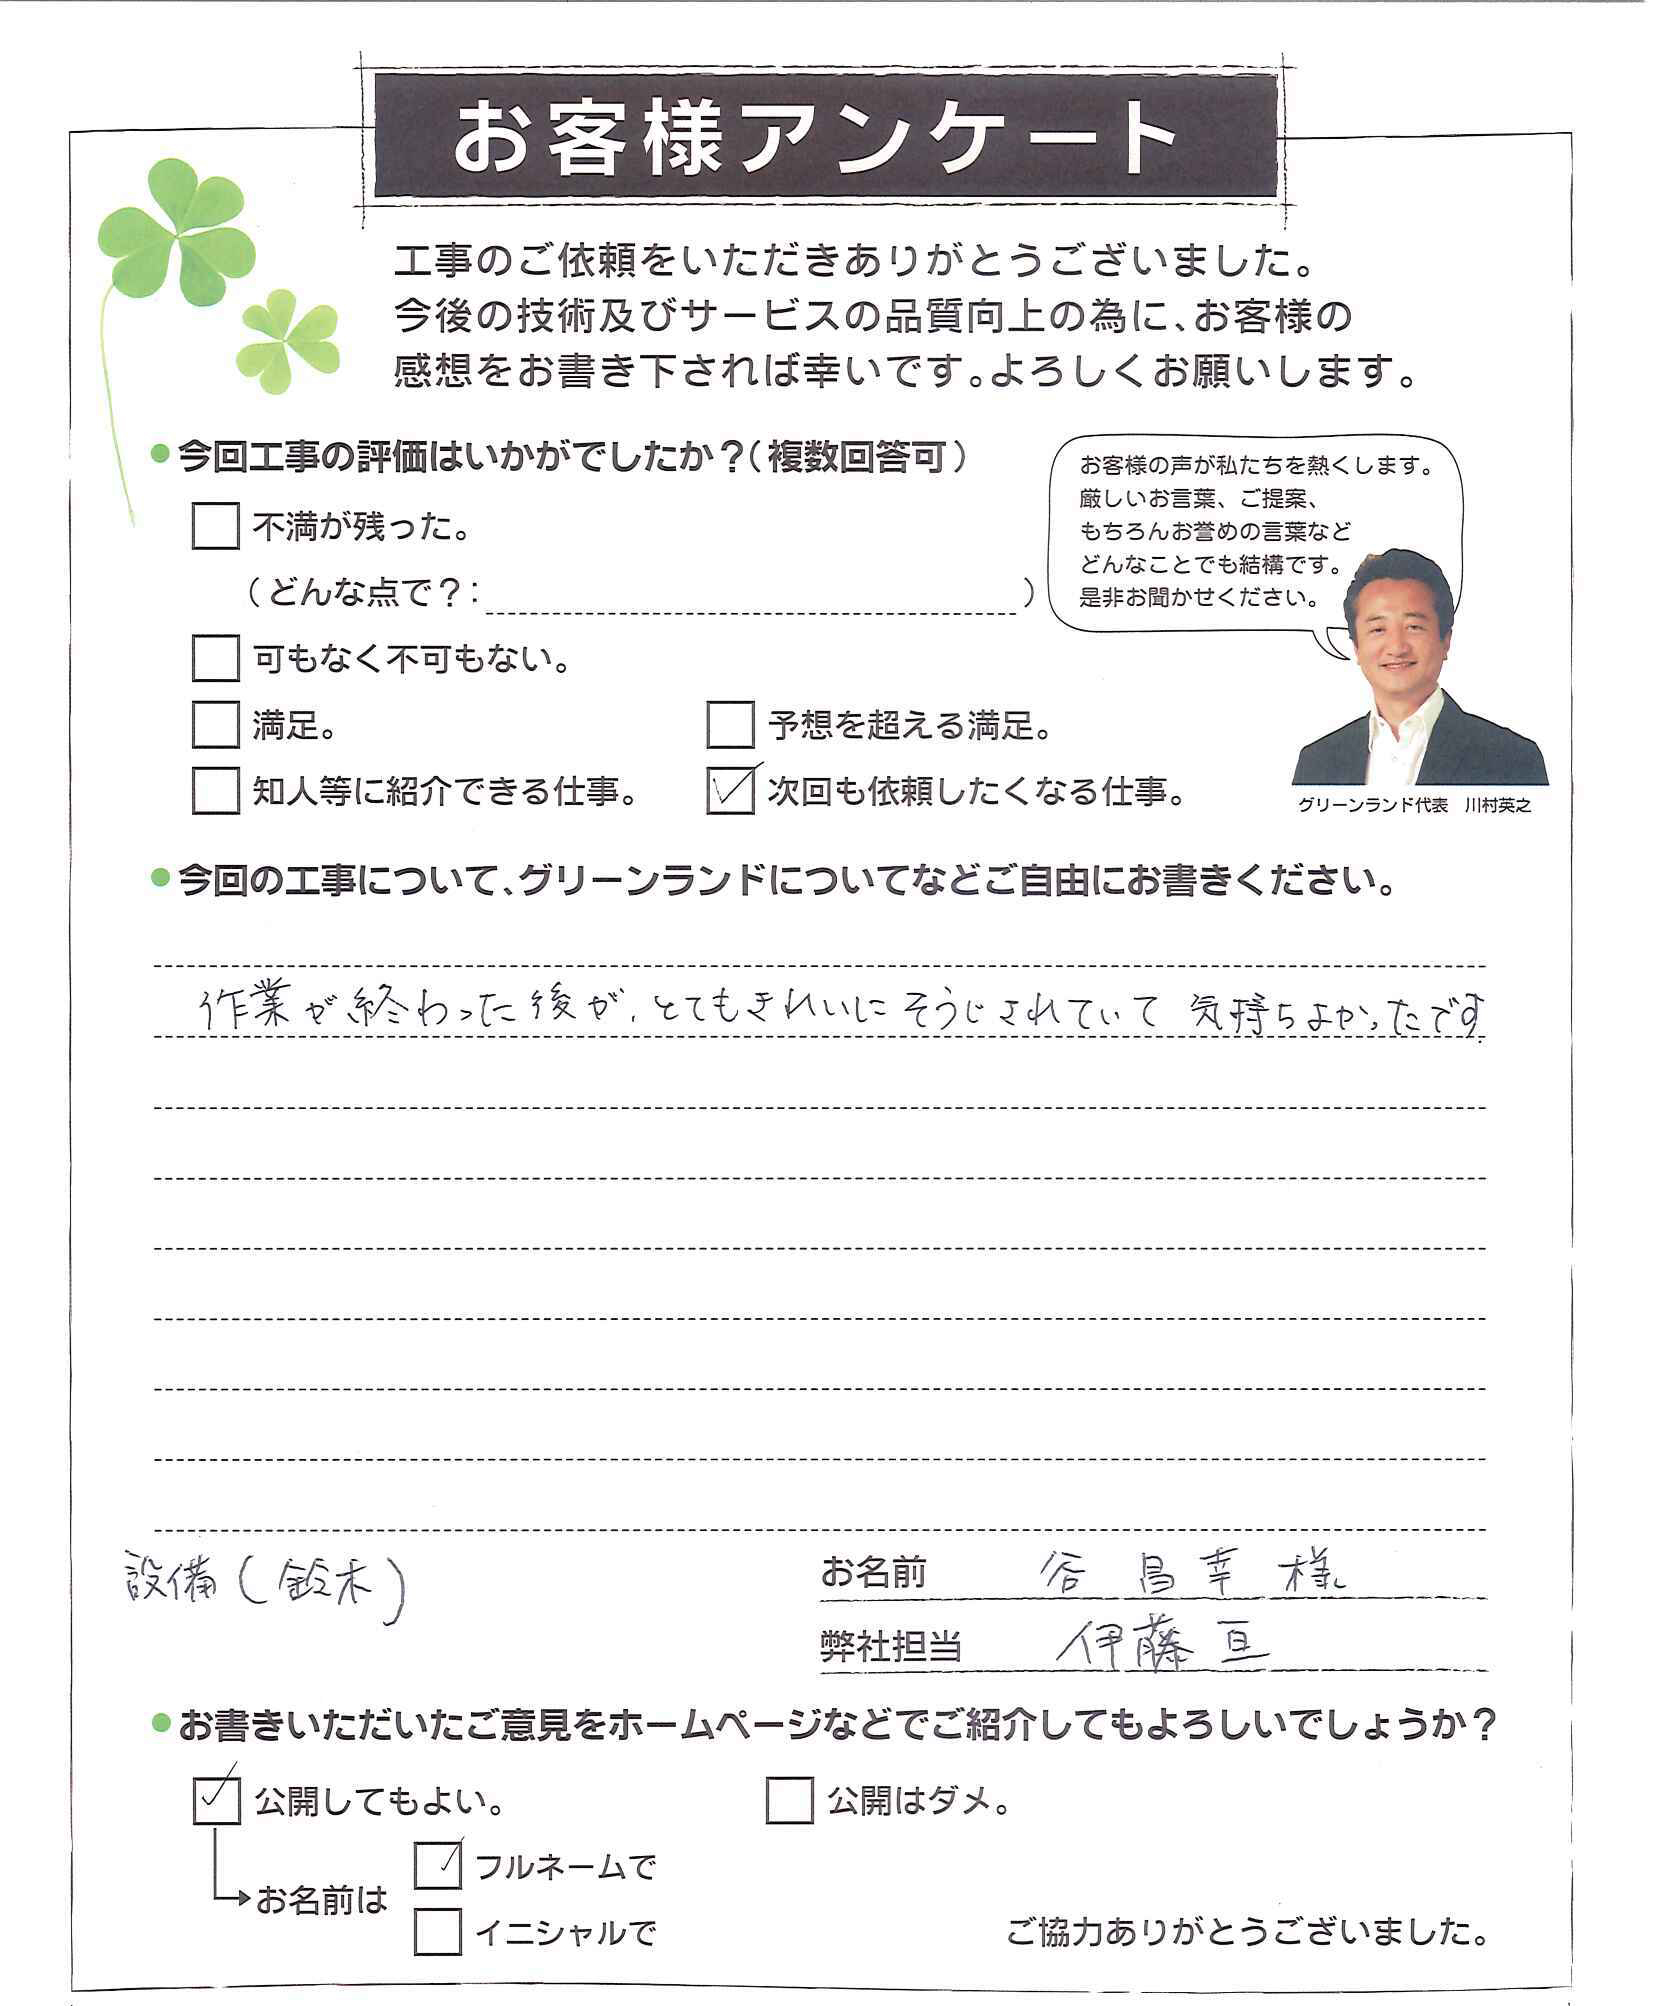 お客様アンケート
工事のご依頼をいただきありがとうございました。
今後の技術及びサービスの品質向上の為に、お客様の
感想をお書き下されば幸いです。よろしくお願いします。
今回工事の評価はいかがでしたか？（複数回答可）
不満が残った。
（どんな点で？： ）
可もなく不可もない。
満足。 予想を超える満足。
知人等に紹介できる仕事。 次回も依頼したくなる仕事。
お客様の声が私たちを熱くします。
厳しいお言葉、ご提案、
もちろんお誉めの言葉など
どんなことでも結構です。
是非お聞かせください。
グリーンランド代表 川村英之
今回の工事について、グリーンランドについてなどご自由にお書きください。
作業が終わった後が、とてもきれいにそうじされていて 気持ちよかったです
設備（鈴木）
お名前 谷 昌幸 様
弊社担当 伊藤 亘
お書きいただいたご意見をホームページなどでご紹介してもよろしいでしょうか？
公開してもよい。 公開はダメ。
お名前は
フルネームで
イニシャルで
ご協力ありがとうございました。